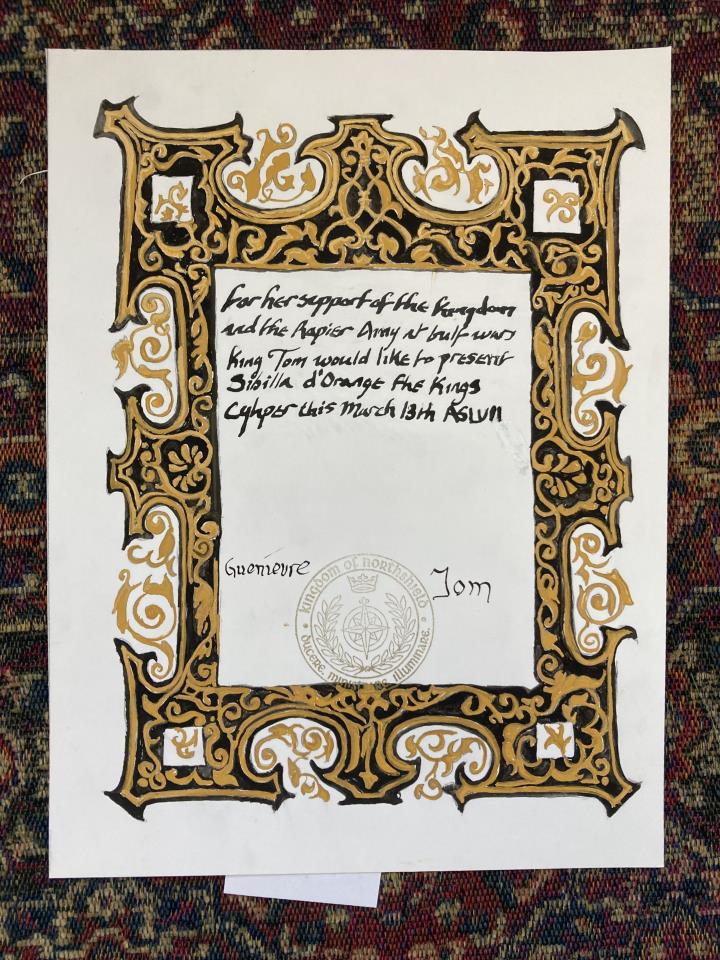 for her support of the Kingdom
and the Rapier Army at bulf wars
King Tom would like to present
Sibilla d'Orange the Kings
Cyhper this March 13th ASLVII
Guenievre
Tom
Kingdom of Northshield
Ducere, Illuminare.